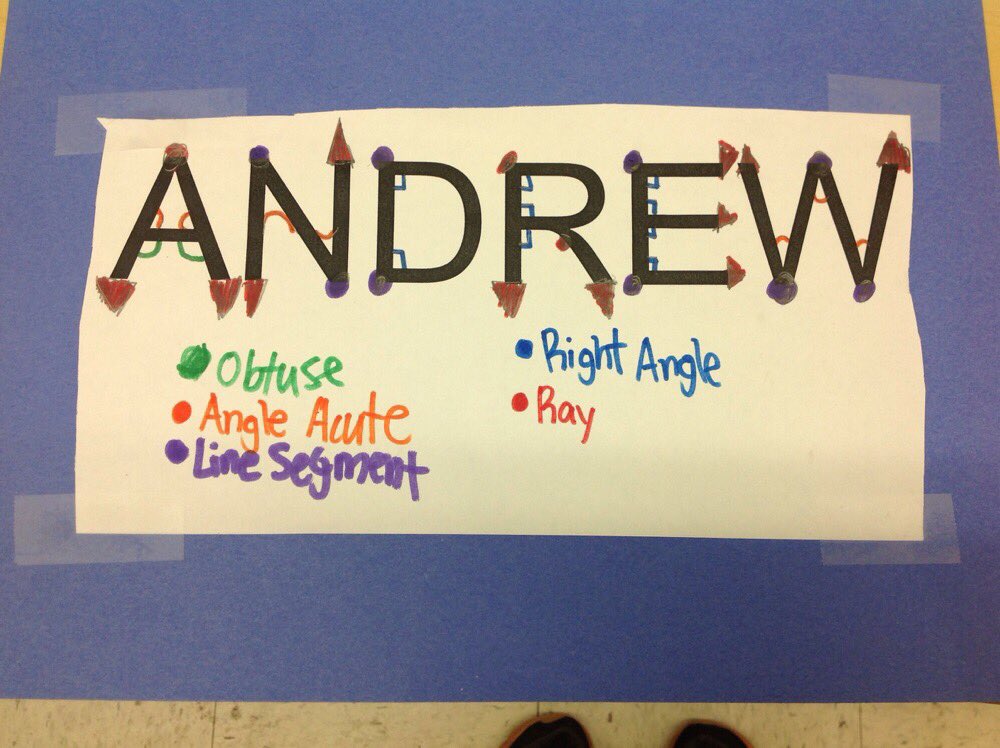 ANDREW
Obtuse
Angle Acute
Line Segment
Right Angle
Ray